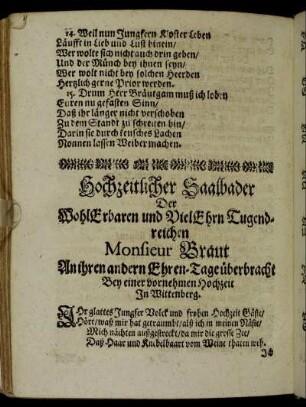 14. Weil nun Jungfern Kloster Leben
Läufft in Lieb und Lust hinein/
Wer wolte sich nicht auch drin geben/
Und der Münch bey ihnen seyn/
Wer wolt nicht bey solchen Heerden
Hertzlich gerne Prior werden.
15. Drum Herr Bräutgam muß ich loben
Euren nu gefasten Sinn/
Daß ihr länger nicht verschoben
Zu dem Standt zu schreiten hin/
Darin sie durch keusches Lachen
Nonnen lassen Weiber machen.
Hochzeitlicher Saalbader
Der
WohlErbaren und VielEhrn Tugend-
reichen
Monsieur Braut
An ihren andern Ehren-Tage überbracht
Bey einer vornehmen Hochzeit
In Wittenberg.
IHr glattes Jungfer Volck und frohen Hochzeit Gäste/
Hört/ waß mir hat getraumbt/ alß ich in meinen Näste/
Mich nächten außgestreckt/ da mir die grosse Zee/
Daß Haar und Knebelbart vom Weine thaten weh.